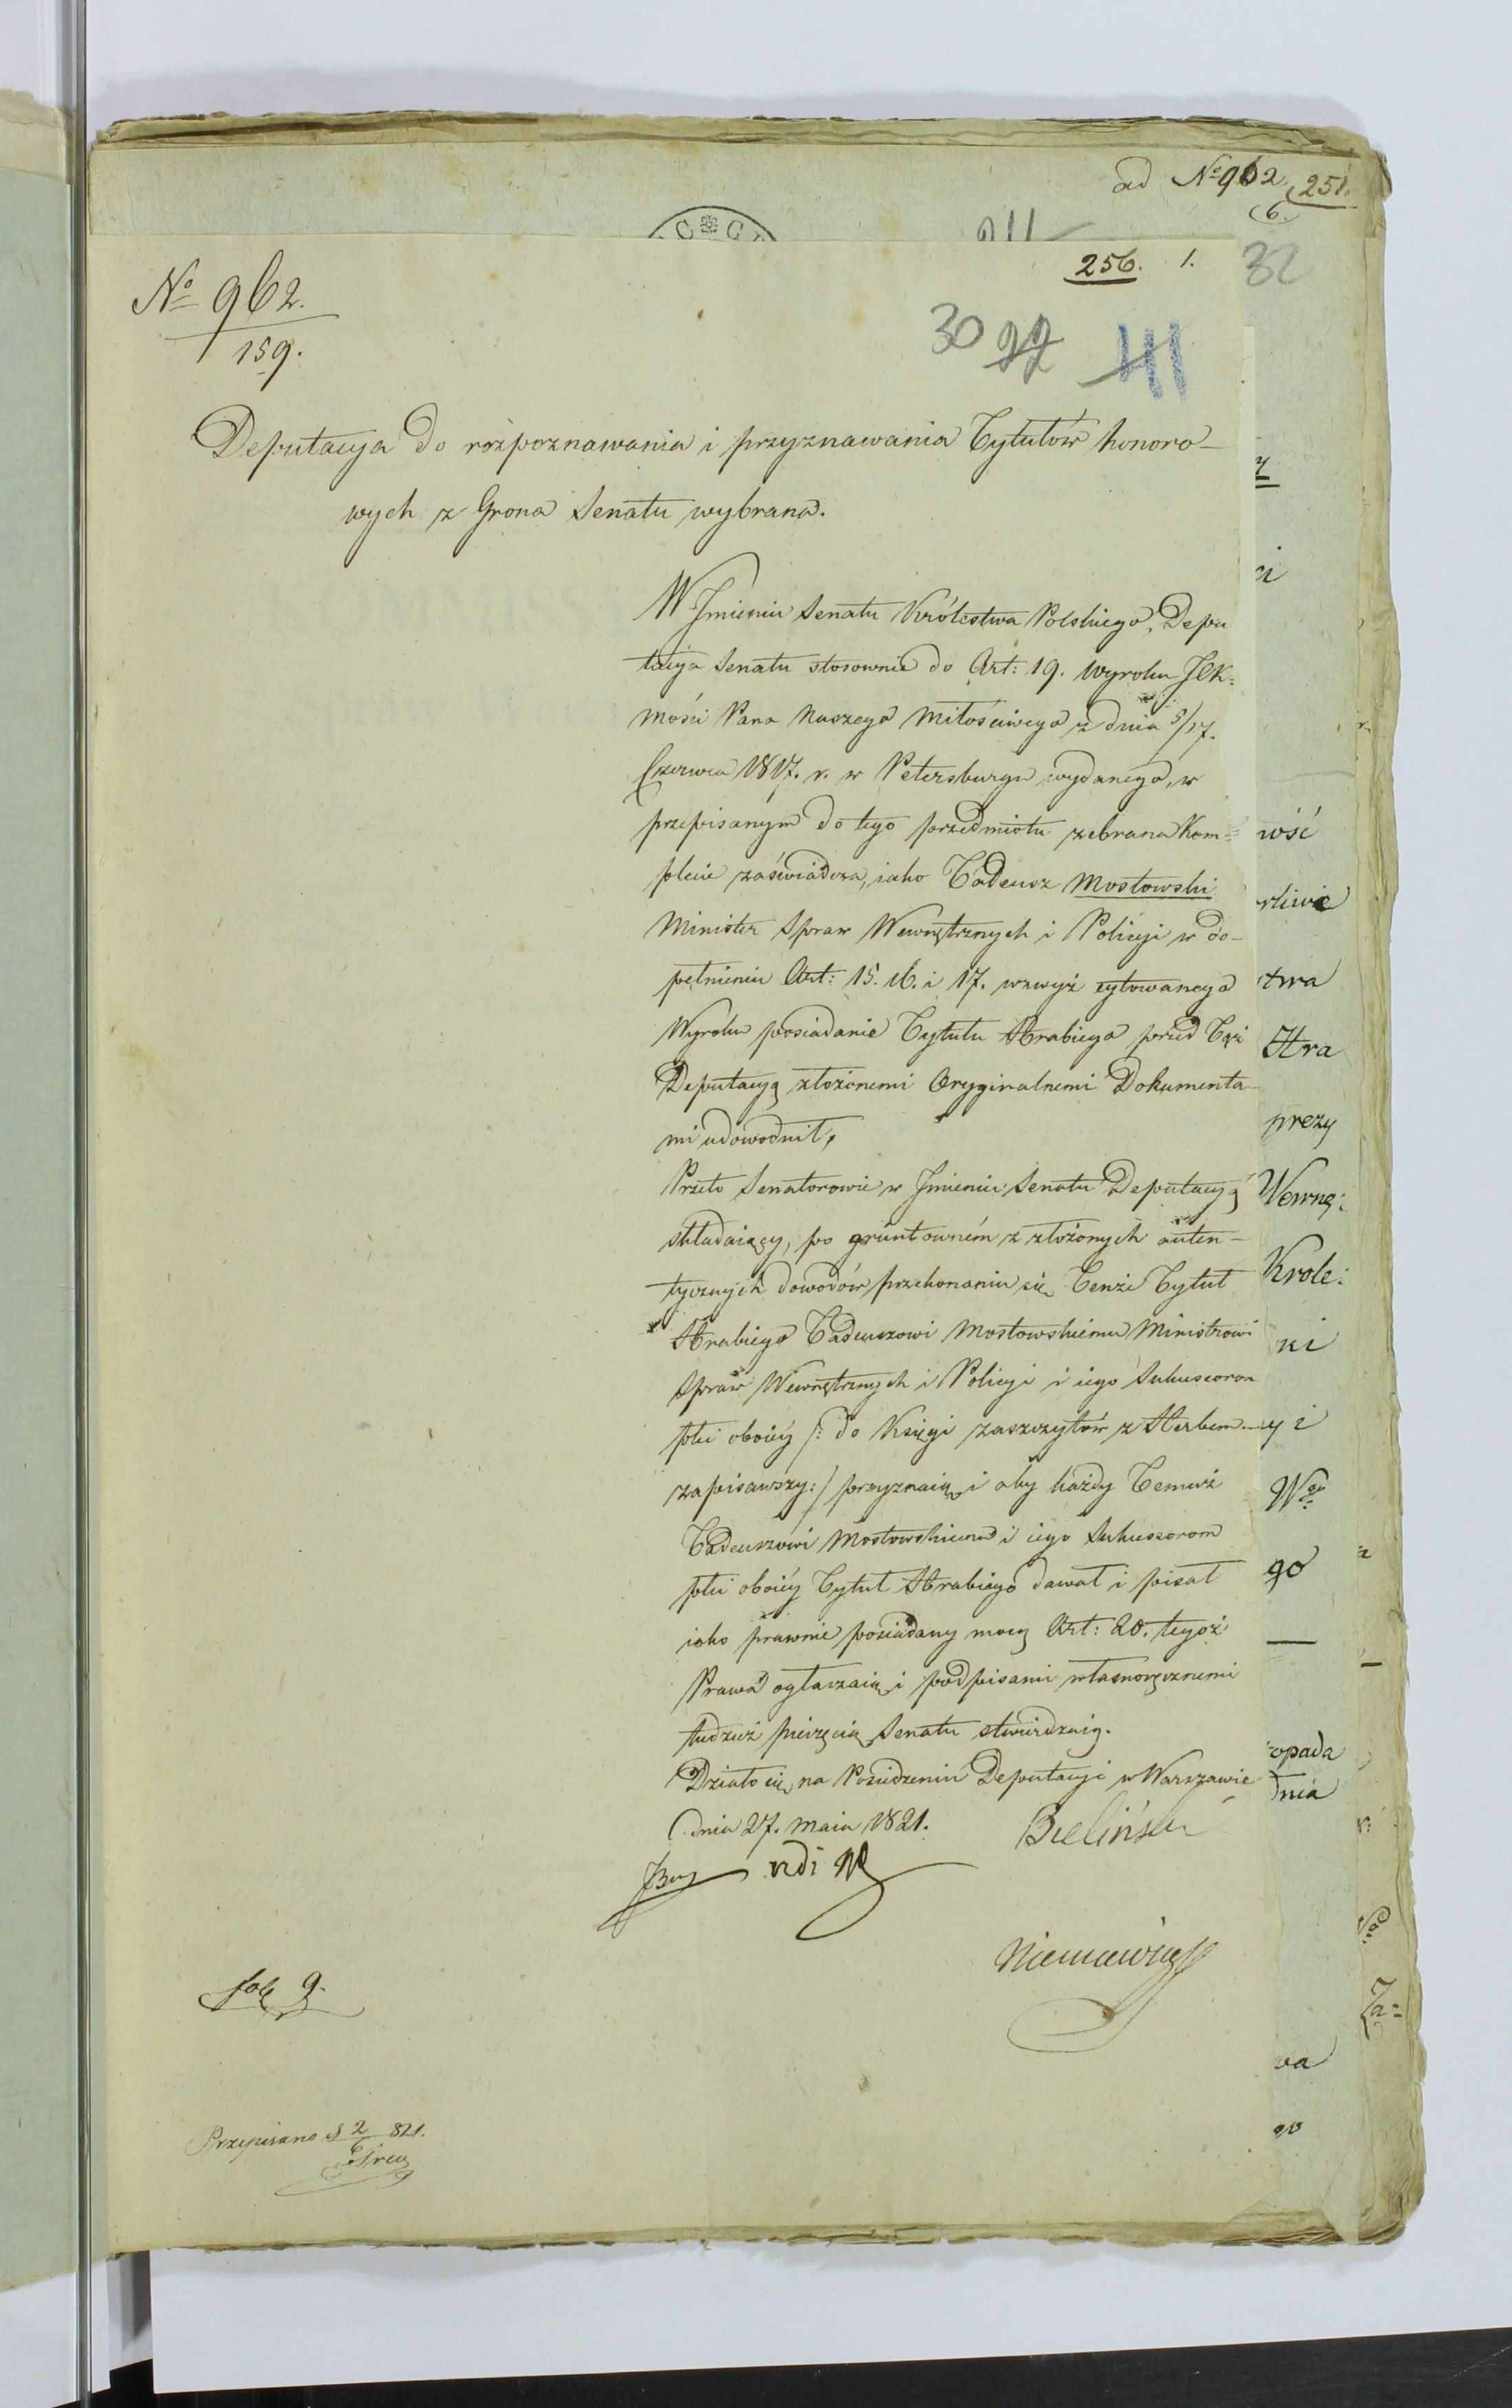 ad No 962. 251.
6.
32
256. 1.
No 962.
159.
30
Deputacya do rozpoznawania i przyznawania Tytułów honoro-
wych z Grona Senatu wybrana.
W Jmieniu Senatu Królestwa Polskiego, Depu
tacya Senatu stosownie do Art: 19. Wyroku JCK:
Mości Pana Naszego Miłościwego z dnia 5/17.
Czerwca 1817. r. w Petersburgu wydanego, w
przepisanym do tego przedmiotu zebrana Kom=
plecie zaświadcza, iako Tadeusz Mostowski
Minister Spraw Wewnętrznych i Policyi w do-
pełnieniu Art: 15. 16. i 17. wzwyż cytowanego
Wyroku posiadanie Tytułu Hrabiego przed Tąż
Deputacyą złożonemi Oryginalnemi Dokumenta-
mi udowodnił,
Przeto Senatorowie w Jmieniu Senatu Deputacyą
składaiący, po gruntowném z złożonych auten-
tycznych dowodów przekonaniu się Tenże Tytuł
Hrabiego Tadeuszowi Mostowskiemu Ministrowi
Spraw Wewnętrznych i Policyi i iego Sukcesorom
płci oboiéy /: do Księgi zaszczytów z Herbem
zapisawszy:/ przyznaią i aby każdy Temuż
Tadeuszowi Mostowskiemu i iego Sukcesorom
płci oboiéy Tytuł Hrabiego dawał i pisał
iako prawnie posiadany mocą Art: 20. tegoż
Prawa ogłaszaią i podpisami własnoręcznemi
tudzież pieczęcią Senatu stwierdzaią.
Działo się na Posiedzeniu Deputacyi w Warszawie
dnia 27. Maia 1821.
Bieliński
vidi
Niemcewicz
fol 9.
Przepisano d 2/6 821.
wość
stwa
Hra
przy
Wewnę:
Krole:
ki
y i
go
opada
dnia
wa